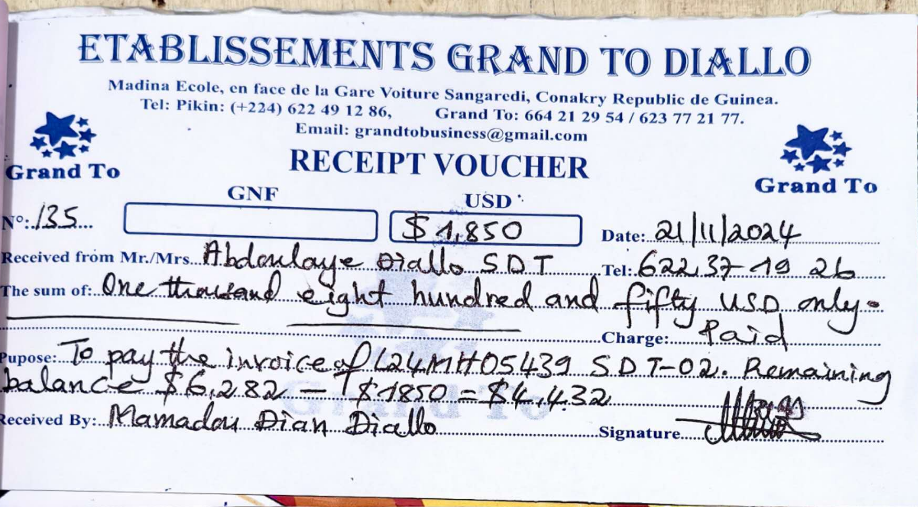 ETABLISSEMENTS GRAND TO DIALLO
Madina Ecole, en face de la Gare Voiture Sangaredi, Conakry Republic de Guinea.
Tel: Pikin: (+224) 622 49 12 86, Grand To: 664 21 29 54 / 623 77 21 77.
Email: grandtobusiness@gmail.com
Grand To
RECEIPT VOUCHER
Grand To
GNF USD
N°: 135 $ 1,850 Date: 21/11/2024
Received from Mr./Mrs. Abdoulaye Diallo SDT Tel: 622 37 19 26
The sum of: One thousand eight hundred and fifty USD only-
Charge: Paid
Pupose: To pay the invoice of L24MH05439 SDT-02. Remaining
balance $6,282 - $1850 = $4,432
Received By: Mamadou Dian Diallo Signature
Grand To